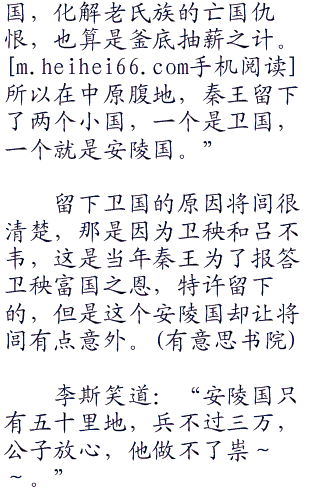 国，化解老氏族的亡国仇
恨，也算是釜底抽薪之计。
[m.heihei66.com手机阅读]
所以在中原腹地，秦王留下
了两个小国，一个是卫国，
一个就是安陵国。”
留下卫国的原因将闾很
清楚，那是因为卫秧和吕不
韦，这是当年秦王为了报答
卫秧富国之恩，特许留下
的，但是这个安陵国却让将
闾有点意外。(有意思书院)
李斯笑道：“安陵国只
有五十里地，兵不过三万，
公子放心，他做不了祟～
～。”